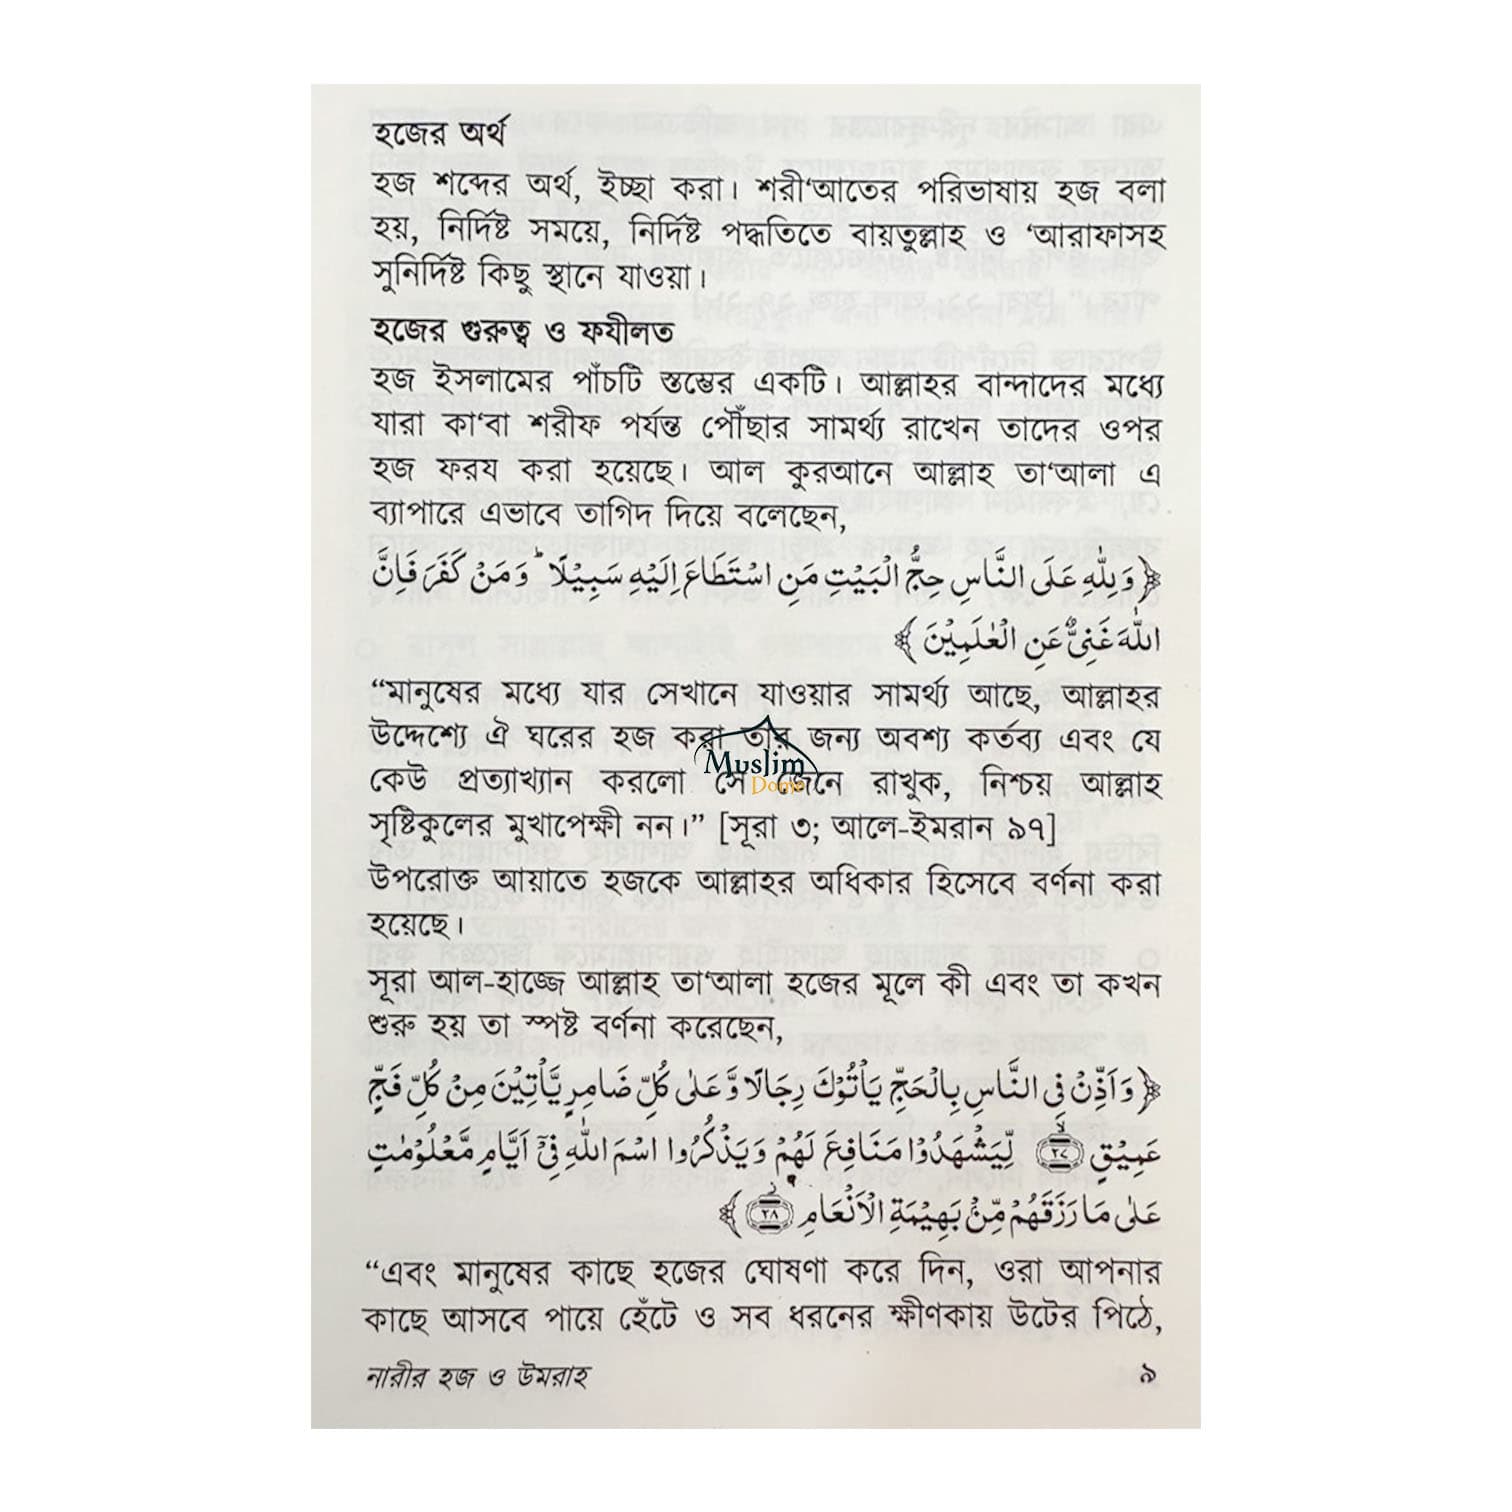 হজের অর্থ
হজ শব্দের অর্থ, ইচ্ছা করা। শরী‘আতের পরিভাষায় হজ বলা
হয়, নির্দিষ্ট সময়ে, নির্দিষ্ট পদ্ধতিতে বায়তুল্লাহ ও ‘আরাফাসহ
সুনির্দিষ্ট কিছু স্থানে যাওয়া।
হজের গুরুত্ব ও ফযীলত
হজ ইসলামের পাঁচটি স্তম্ভের একটি। আল্লাহর বান্দাদের মধ্যে
যারা কা‘বা শরীফ পর্যন্ত পৌঁছার সামর্থ্য রাখেন তাদের ওপর
হজ ফরয করা হয়েছে। আল কুরআনে আল্লাহ তা‘আলা এ
ব্যাপারে এভাবে তাগিদ দিয়ে বলেছেন,
﴿ وَلِلّٰهِ عَلَى النَّاسِ حِجُّ الْبَيْتِ مَنِ اسْتَطَاعَ اِلَيْهِ سَبِيْلًا ؕ وَمَنْ كَفَرَ فَاِنَّ
اللّٰهَ غَنِىٌّ عَنِ الْعٰلَمِيْنَ ﴾
“মানুষের মধ্যে যার সেখানে যাওয়ার সামর্থ্য আছে, আল্লাহর
উদ্দেশ্যে ঐ ঘরের হজ করা তার জন্য অবশ্য কর্তব্য এবং যে
কেউ প্রত্যাখ্যান করলো সে জেনে রাখুক, নিশ্চয় আল্লাহ
সৃষ্টিকুলের মুখাপেক্ষী নন।” [সূরা ৩; আলে-ইমরান ৯৭]
Muslim
Dome
উপরোক্ত আয়াতে হজকে আল্লাহর অধিকার হিসেবে বর্ণনা করা
হয়েছে।
সূরা আল-হাজ্জে আল্লাহ তা‘আলা হজের মূলে কী এবং তা কখন
শুরু হয় তা স্পষ্ট বর্ণনা করেছেন,
﴿ وَاَذِّنْ فِى النَّاسِ بِالْحَجِّ يَاْتُوْكَ رِجَالًا وَّعَلٰى كُلِّ ضَامِرٍ يَّاْتِيْنَ مِنْ كُلِّ فَجٍّ
عَمِيْقٍ ۙ‏﴿۲۷﴾ لِّيَشْهَدُوْا مَنَافِعَ لَهُمْ وَيَذْكُرُوا اسْمَ اللّٰهِ فِىْٓ اَيَّامٍ مَّعْلُوْمٰتٍ
عَلٰى مَا رَزَقَهُمْ مِّنْۢ بَهِيْمَةِ الْاَنْعَامِ ﴿۲۸﴾ ﴾
“এবং মানুষের কাছে হজের ঘোষণা করে দিন, ওরা আপনার
কাছে আসবে পায়ে হেঁটে ও সব ধরনের ক্ষীণকায় উটের পিঠে,
নারীর হজ ও উমরাহ ৯